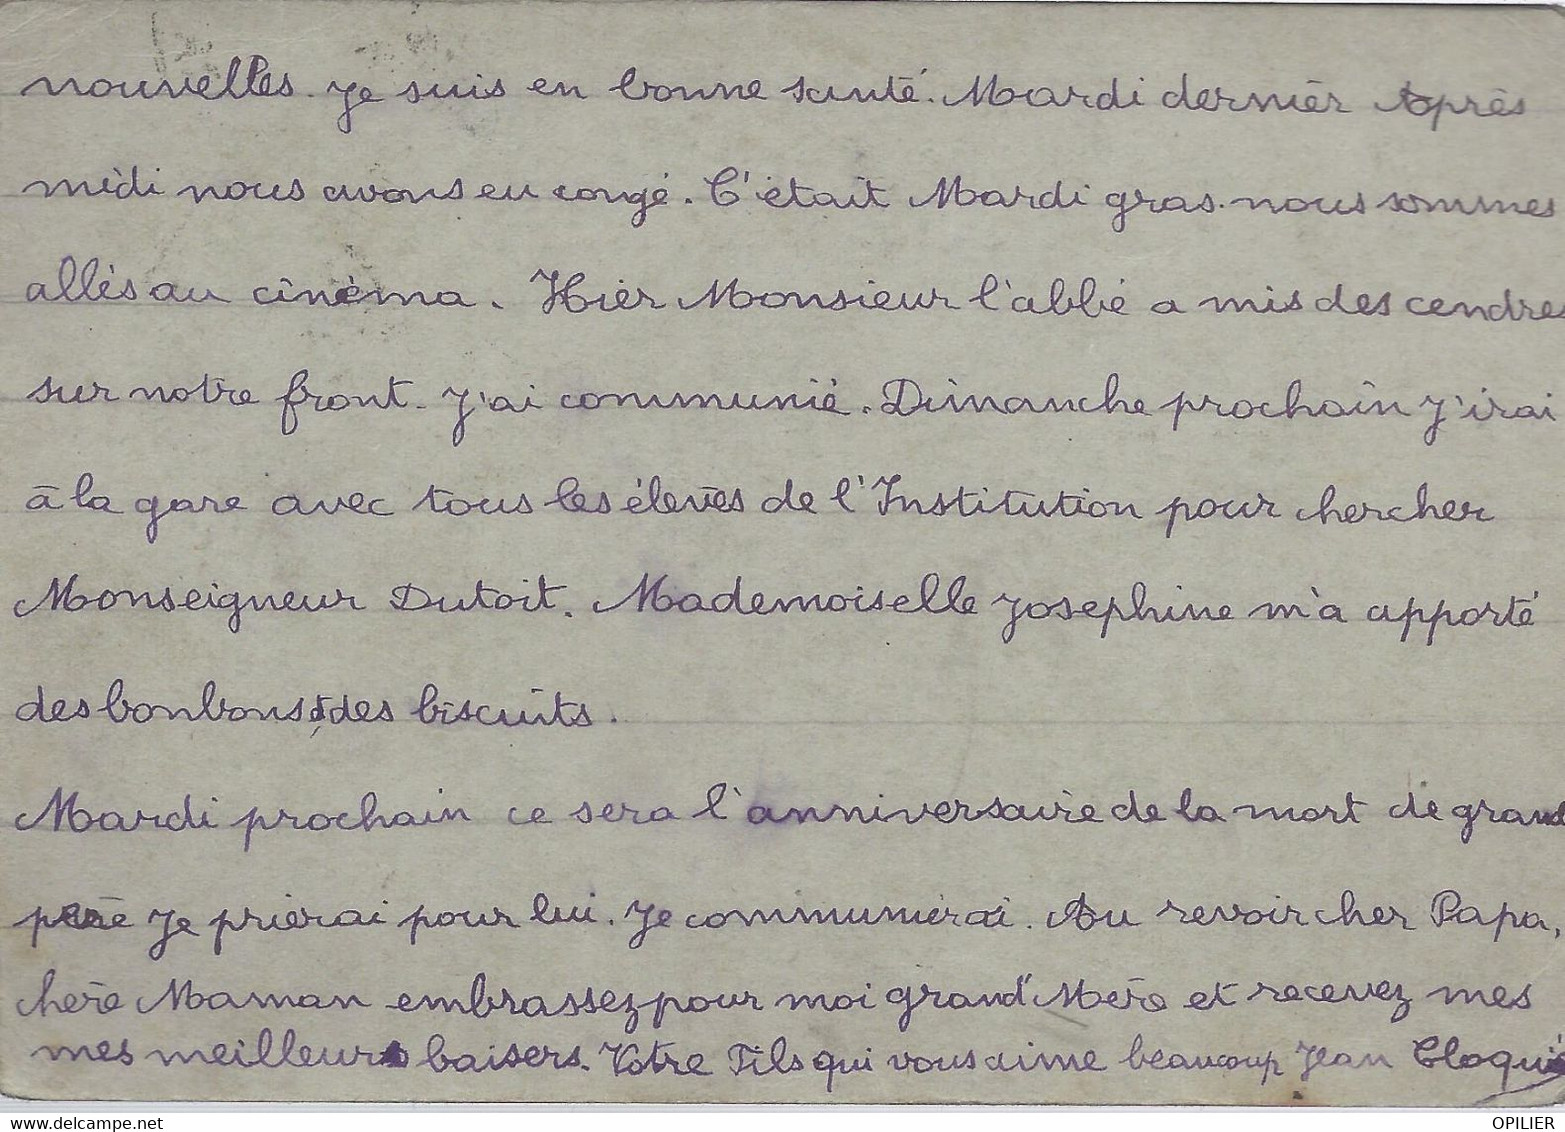 nouvelles. Je suis en bonne santé. Mardi dernier Après
midi nous avons eu congé. C'était Mardi gras. nous sommes
allés au cinéma. Hier Monsieur l'abbé a mis des cendres
sur notre front. J'ai communié. Dimanche prochain j'irai
à la gare avec tous les élèves de l'Institution pour chercher
Monseigneur Dutoit. Mademoiselle Josephine m'a apporté
des bonbons et des biscuits.
Mardi prochain ce sera l'anniversaire de la mort de grand
père Je prierai pour lui. Je communierai. Au revoir cher Papa,
chère Maman embrassez pour moi grand'Mère et recevez mes
mes meilleurs baisers. Votre Fils qui vous aime beaucoup Jean Cloqué
delcampe.net
OPILIER